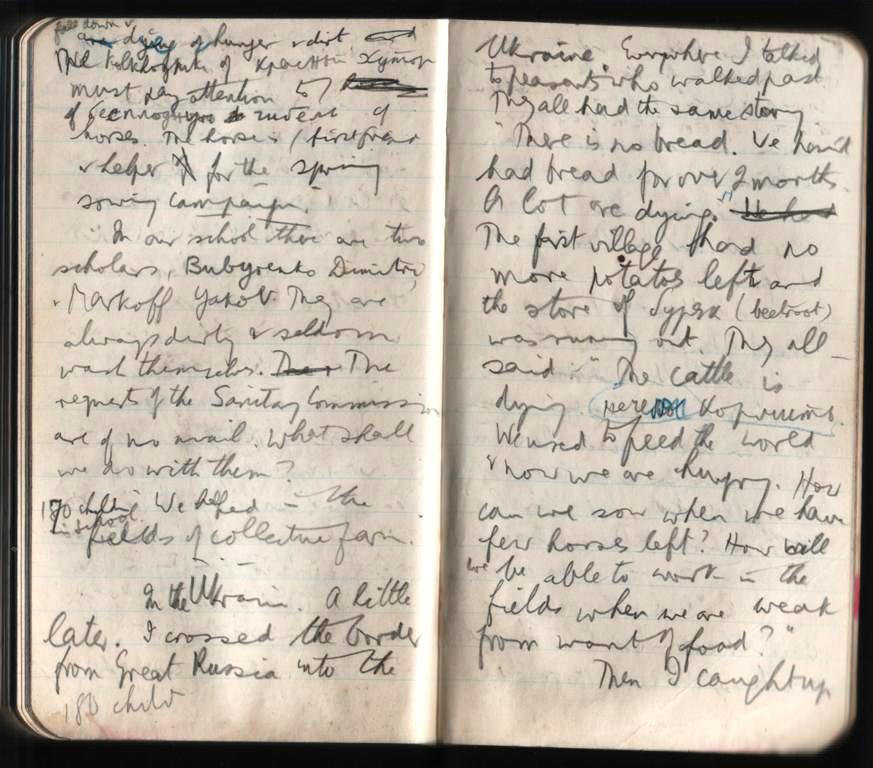 fall down &
are dying of hunger & dirt
The kolkhozniks of Красный Хутор
must pay attention to
of
horses. The horse is 1 first friend
& helper for the spring
sowing campaign."
"In our school there are two
scholars, Bubyrenko Dimitri
& Markoff Yakov. They are
always dirty & seldom
wash themselves. The
requests of the Sanitary Commission
are of no avail. What shall
we do with them?
170 children We helped in the
in school.
fields of collective farm.
In the Ukraine. A little
later. I crossed the border
from Great Russia into the
180 child
Ukraine. Everywhere I talked
to peasants who walked past
They all had the same story.
"There is no bread. We haven't
had bread for over 2 months.
A lot are dying." He had
The first village had no
more potatoes left and
the store of буряк (beetroot)
was running out. They all
said "The cattle is
dying. нечем кормить.
We used to feed the world
& now we are hungry. How
can we sow when we have
few horses left? How will
we be able to work in the
fields when we are weak
from want of food?"
Then I caught up